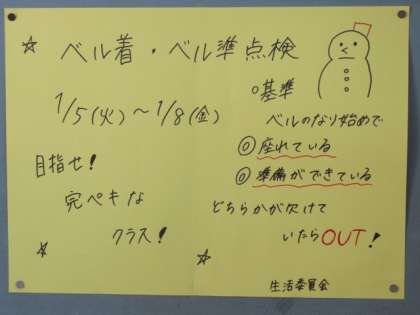 ベル着・ベル準点検
1/5(火)～1/8(金)
目指せ!
完ペキな
クラス!
○基準
ベルのなり始めで
◎座れている
◎準備ができている
どちらかが欠けて
いたらOUT!
生活委員会